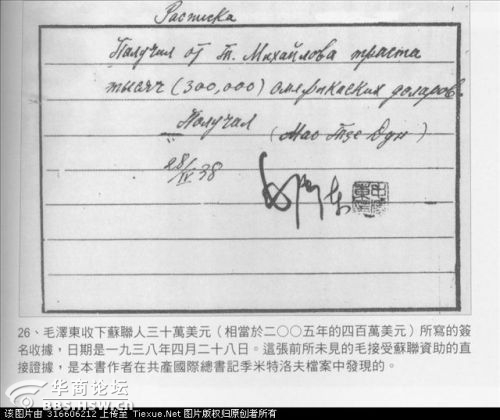 Расписка
Получил от Т. Михайлова триста
тысяч (300,000) америкаских доларов.
Получил (Мао Тзе Дун)
28/IV 38
毛泽东
26、毛澤東收下蘇聯人三十萬美元（相當於二○○五年的四百萬美元）所寫的簽
名收據，日期是一九三八年四月二十八日。這張前所未見的毛接受蘇聯資助的直
接證據，是本書作者在共產國際總書記季米特洛夫檔案中發現的。
华商论坛
bbs.hsw.cn
该图片由 316606212 上传至 Tiexue.Net 图片版权归原创者所有